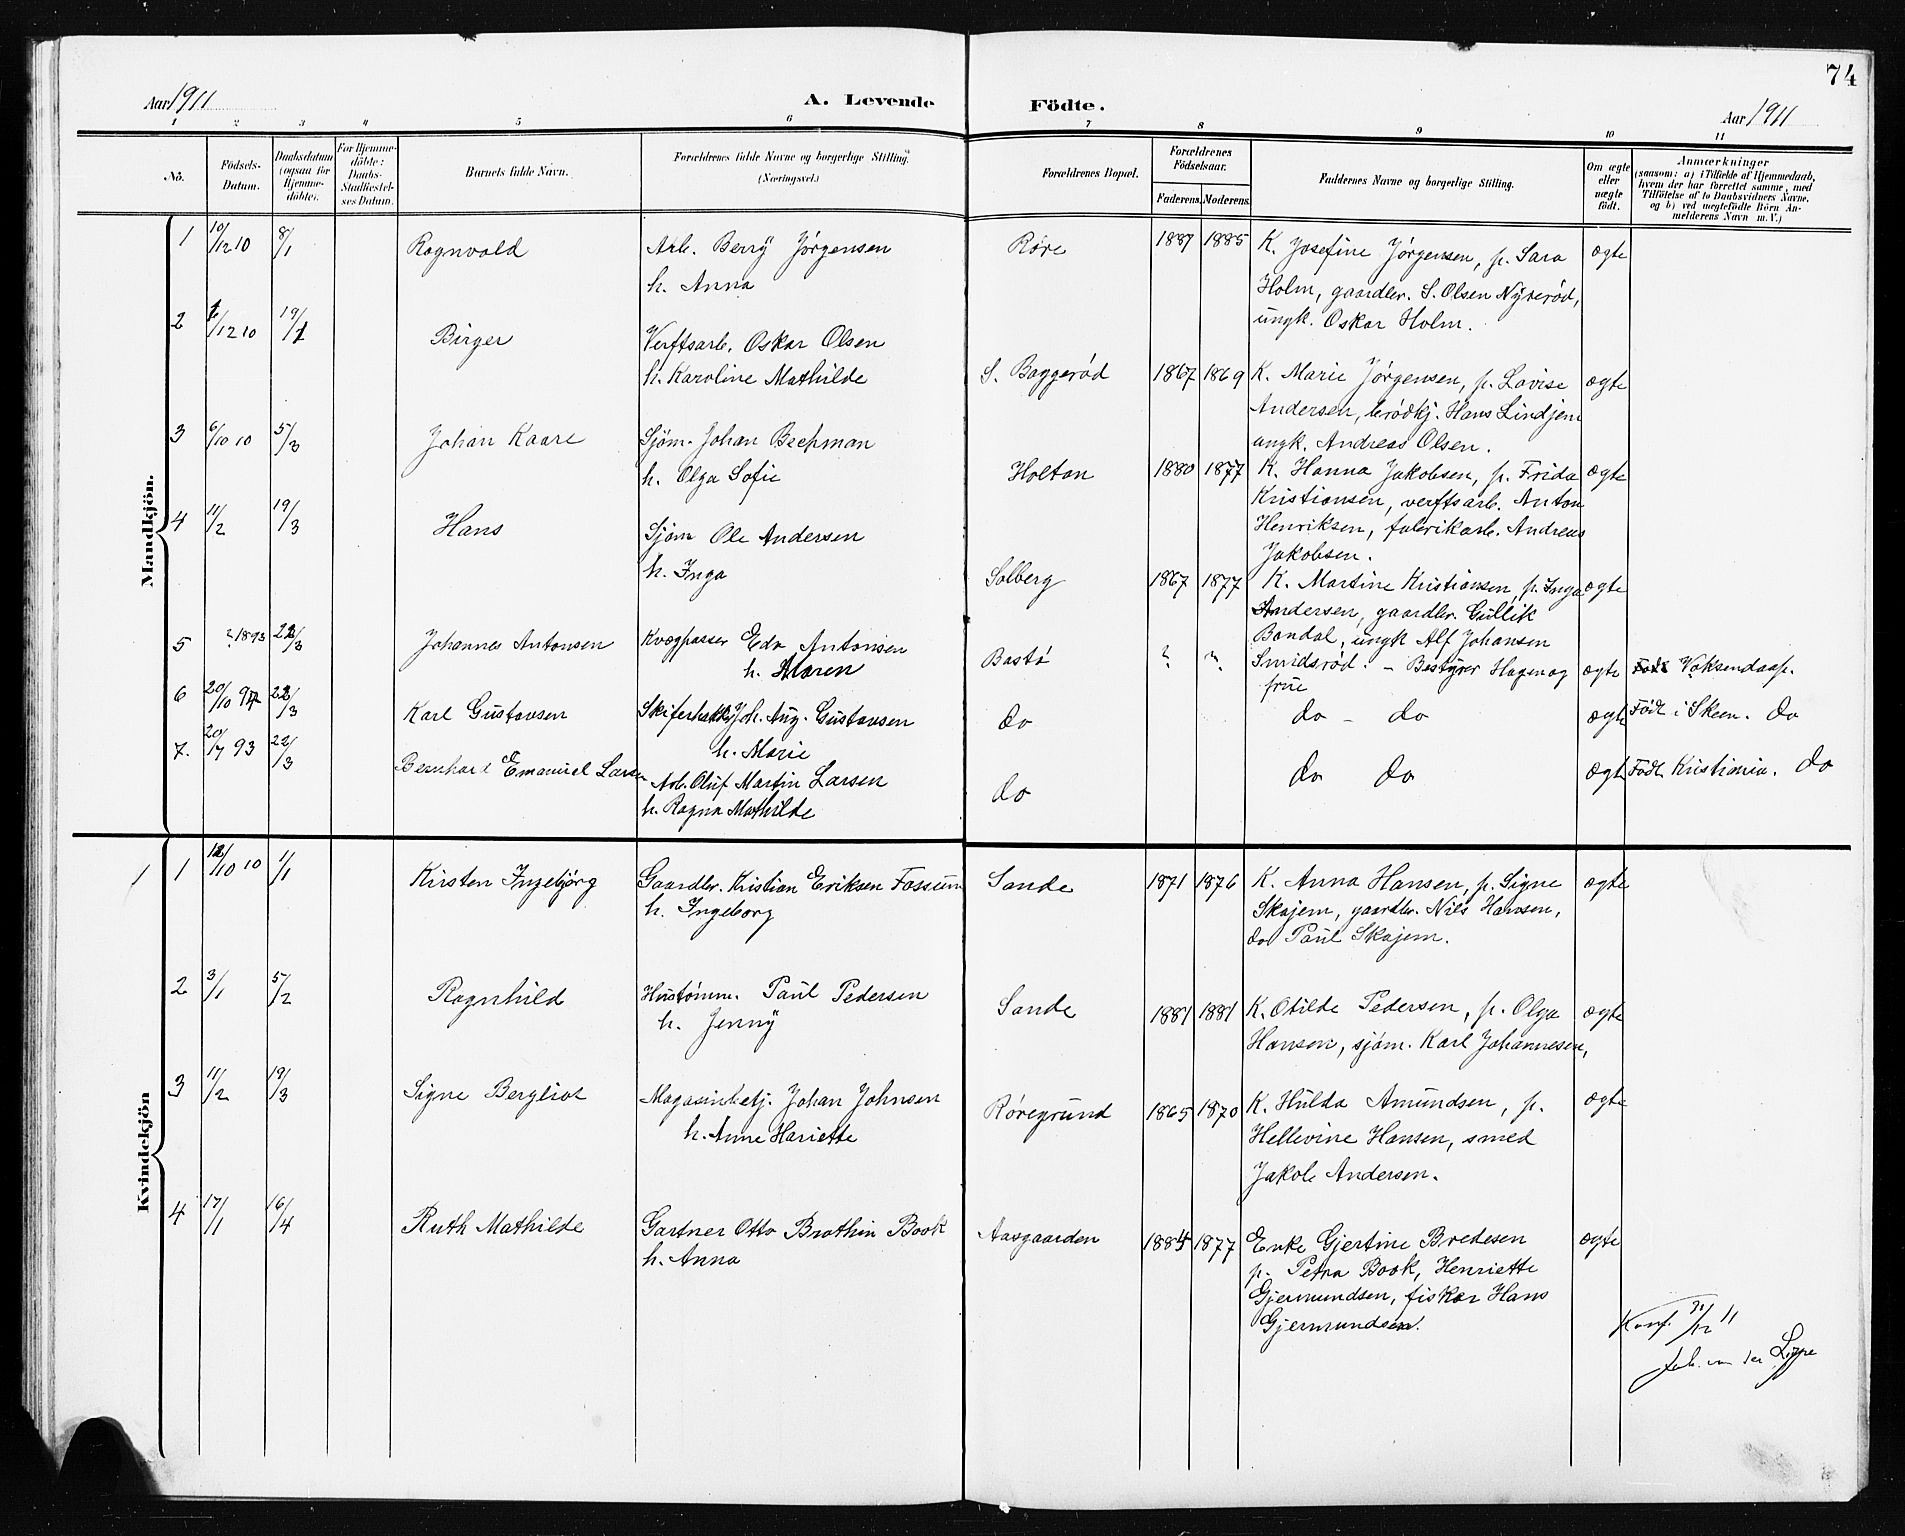 74
Aar 1911
A. Levende
Födte.
Aar 1911
1 2 3 4 5 6 7 8 9 10 11
No.
Födsels-
Datum.
Daabsdatum
(ogsaa for
Hjemme-
döbte).
For Hjemme-
döbte:
Daabs-
Stadfæstel-
ses Datum.
Barnets fulde Navn.
Forældrenes fulde Navne og borgerlige Stilling.
(Næringsvei.)
Forældrenes Bopæl.
Forældrenes
Födselsaar.
Faderens. Moderens.
Faddernes Navne og borgerlige Stilling.
Om ægte
eller
uægte
født.
Anmærkninger
(saasom: a) i Tilfælde af Hjemmedaab,
hvem der har forrettet samme, med
Tilföielse af to Daabsvidners Navne,
og b) ved uægtefödte Börn An-
melderens Navn m. V.)
Mandkjön.
1 10/12 10 8/1 Ragnvald Arb. Berry Jørgensen Røre 1887 1885 K. Josefine Jørgensen, p. Sara ægte
h. Anna Holm, gaardbr. S. Olsen Nyverød,
ungk. Oskar Holm.
2 /12 10 19/1 Birger Verftsarb. Oskar Olsen
h. Karoline Mathilde S. Baggerød 1867 1869 K. Marie Jørgensen, p. Lovise ægte
Andersen, brødkj. Hans Lindjem
ungk. Andreas Olsen.
3 6/10 10 5/3 Johan Kaare Sjøm. Johan Bechman
h. Olga Sofie Holtan 1880 1877 K. Hanna Jakobsen, p. Frida ægte
Kristiansen, verftsarb. Anton
Henriksen, fabrikarb. Andreas
Jakobsen.
4 11/2 19/3 Hans Sjøm Ole Andersen
h. Inga Solberg 1867 1877 K. Martine Kristiansen, p. Inga ægte
Andersen, gaardbr. Gullik
Bondal, ungk Alf Johansen
Smidsrød.
5 ? 1893 22/3 Johannes Antonsen Kvægpasser Edv Antonsen
h. Maren Bastø ? ? – Bestyrer Hagen og ægte Voksendaap.
frue
6 20/10 94 22/3 Karl Gustavsen Skiferhakk Joh. Aug. Gustavsen
h. Marie do do – do ægte Født i Skeen. do
7. 20/7 93 22/3 Bernhard Emanuel Larsen Arb. Oluf Martin Larsen
h. Ragna Mathilde do do do ægte Født Kristiania. do
Kvindekjön
1 1 12/10 10 1/1 Kirsten Ingebjørg Gaardbr. Kristian Eriksen Fossum Sande 1871 1876 K. Anna Hansen, p. Signe ægte
h. Ingeborg Skajem, gaardbr. Nils Hansen,
do Paul Skajem.
2 3/1 5/2 Ragnhild Hustømm. Paul Pedersen
h. Jenny Sande 1881 1881 K. Otilde Pedersen, p. Olga ægte
Hansen, sjøm. Karl Johannesen,
3 11/2 19/3 Signe Bergliot Magasinbetj. Johan Johnsen
h. Anne Hariette Røregrund 1865 1870 K. Hulda Amundsen, p. ægte
Hellevine Hansen, smed
Jakob Andersen.
4 17/1 16/4 Ruth Mathilde Gartner Otto Brathin Book
h. Anna Aasgaarden 1884 1877 Enke Gjertine Bredesen ægte
p. Petra Book, Henriette
Gjermundsen, fisker Hans
Gjermundsen.
Konf. 31/12 11
Jak. von der Lippe